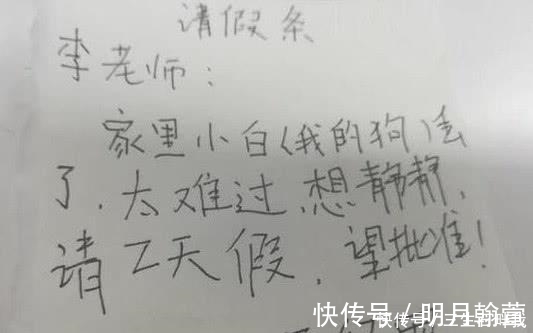 请假条
李老师：
家里小白（我的狗）丢
了，太难过，想静静，
请2天假，望批准！
快传号 / 明月翰蕾